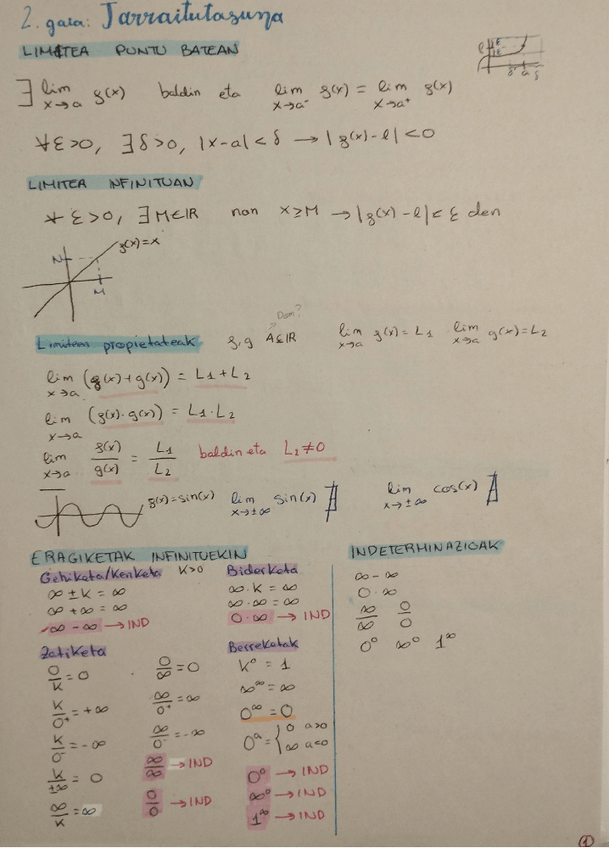 2. gaia: Jarraitutasuna
LIMITEA PUNTU BATEAN
∃ lim x→a f(x) baldin eta lim x→a⁻ f(x) = lim x→a⁺ f(x)
∀ε>0, ∃δ>0, |x-a|<δ → |f(x)-l|<0
LIMITEA INFINITUAN
∀ε>0, ∃M∈IR non x≥M → |f(x)-l|<ε den
f(x)=x
N
M
Limiteen propietateak f,g A⊆IR lim x→a f(x)=L₁ lim x→a g(x)=L₂
Dom?
lim x→a (f(x)+g(x)) = L₁+L₂
lim x→a (f(x)·g(x)) = L₁·L₂
lim x→a f(x)/g(x) = L₁/L₂ baldin eta L₂≠0
f(x)=sin(x) lim x→±∞ sin(x) ∄ lim x→±∞ cos(x) ∄
ERAGIKETAK INFINITUEKIN
Gehiketa/Kenketa K>0
∞ ± K = ∞
∞ + ∞ = ∞
∞ - ∞ → IND
Biderketa
∞·K = ∞
∞·∞ = ∞
0·∞ → IND
Zatiketa
0/K = 0
K/0⁺ = +∞
K/0⁻ = -∞
K/±∞ = 0
∞/K = ∞
0/∞ = 0
∞/0⁺ = ∞
∞/0⁻ = -∞
∞/∞ → IND
0/0 → IND
Berreketak
K⁰ = 1
∞^∞ = ∞
0^∞ = 0
0^a = { 0 a>0
∞ a<0
0⁰ → IND
∞⁰ → IND
1^∞ → IND
INDETERMINAZIOAK
∞-∞
0·∞
∞/∞ 0/0
0⁰ ∞⁰ 1^∞
1